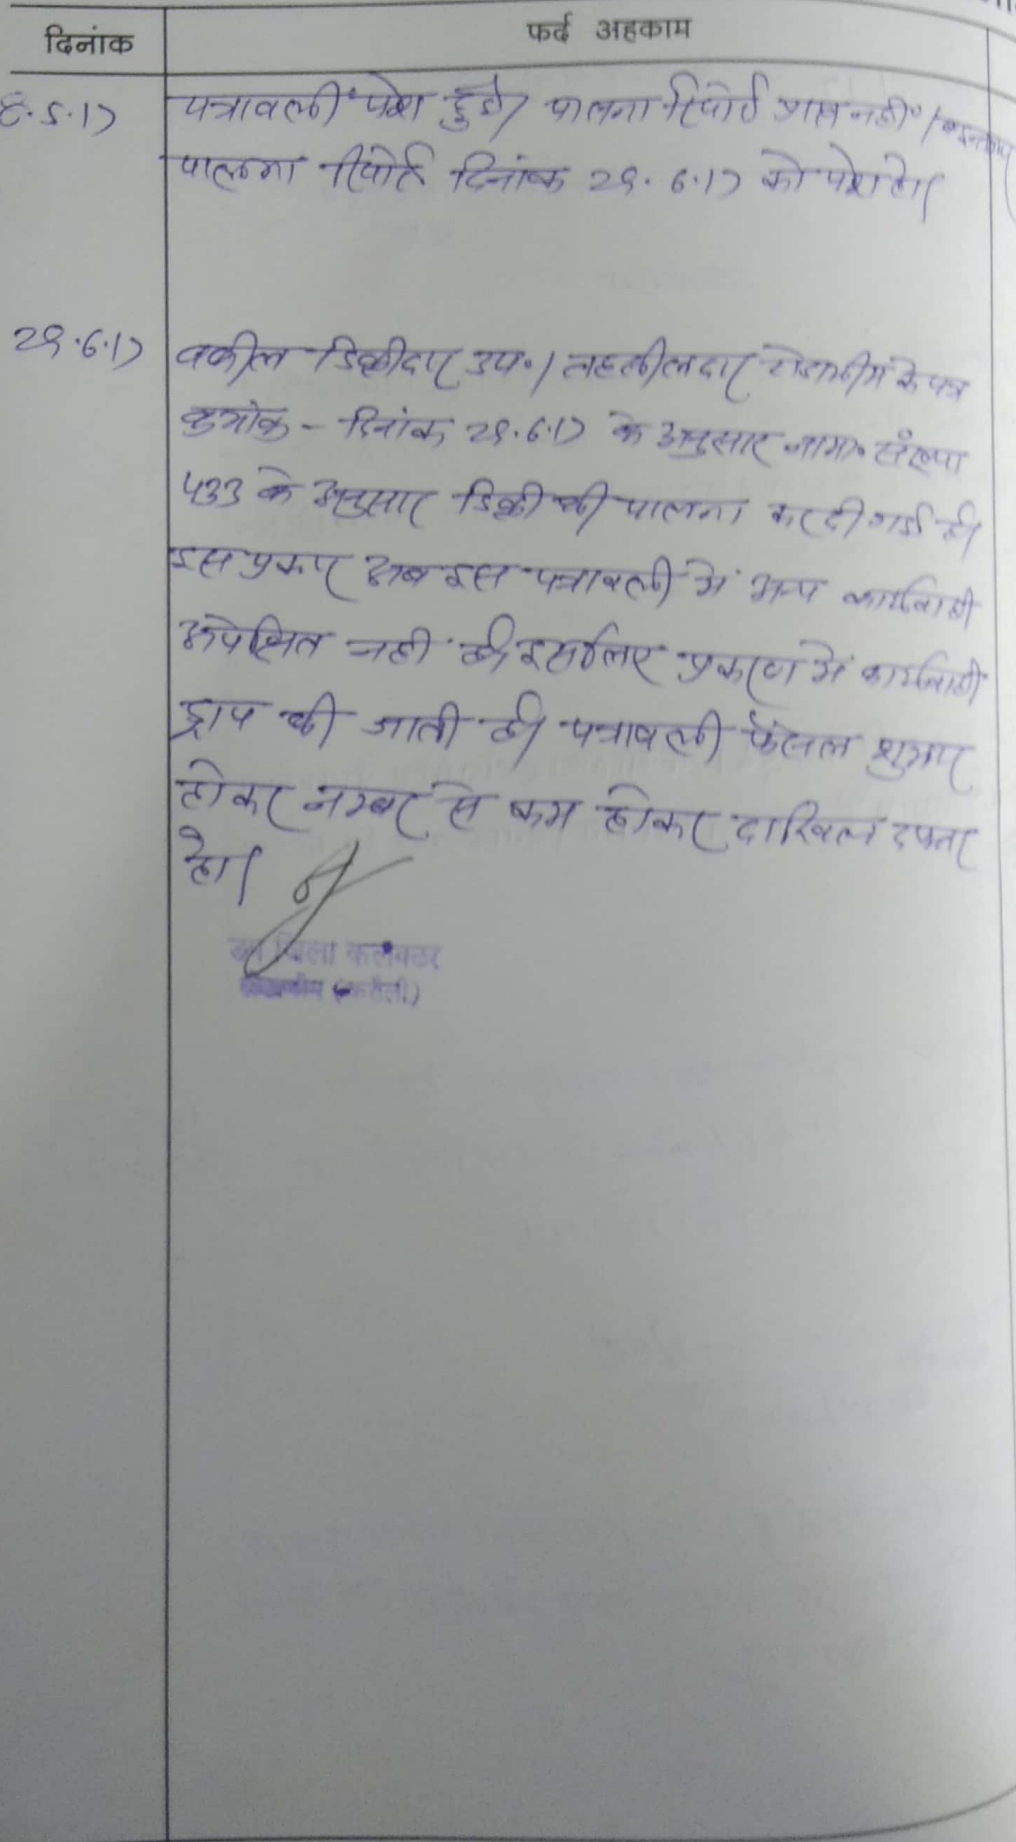 दिनांक
फर्द अहकाम
8.5.17
पत्रावली पेश हुई। पालना रिपोर्ट प्राप्त नही।
पालना रिपोर्ट दिनांक 29.6.17 को पेश हो।
29.6.17
वकील डिक्रीदार उप.। तहसीलदार टोडाभीम के पत्र
क्रमांक - दिनांक 29.6.17 के अनुसार नामा. संख्या
433 के अनुसार डिक्री की पालना कर दी गई है।
इस प्रकार अब इस पत्रावली में अन्य कार्यवाही
अपेक्षित नही है। इसलिए प्रकरण में कार्यवाही
ड्राप की जाती है। पत्रावली फैसल शुमार
होकर नम्बर से कम होकर दाखिल दफ्तर
हो।
उप जिला कलेक्टर
(करौली)